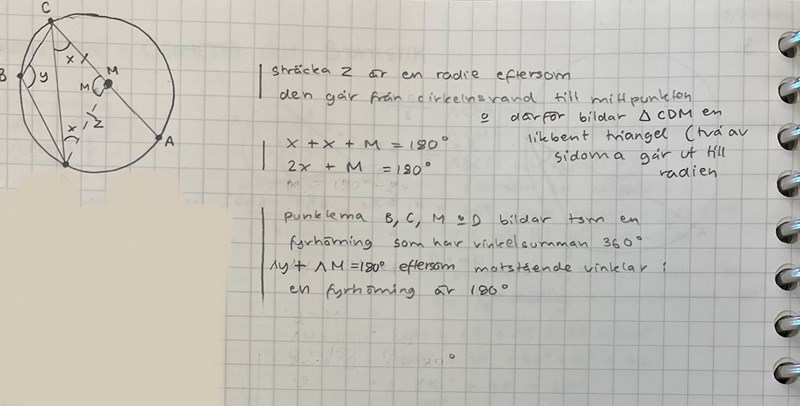 C
B
y
x x
M
M
z
x
A
sträcka z är en radie eftersom
den går från cirkelns rand till mittpunkten
o därför bildar △ CDM en
likbent triangel (två av
sidorna går ut till
radien
x + x + M = 180°
2x + M = 180°
punkterna B, C, M o D bildar tsm en
fyrhörning som har vinkelsumman 360°
∧y + ∧M = 180° eftersom motstående vinklar i
en fyrhörning är 180°